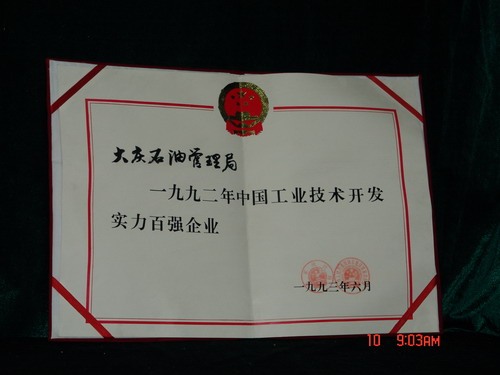 大庆石油管理局
一九九二年中国工业技术开发
实力百强企业
一九九三年六月
10 9:03AM